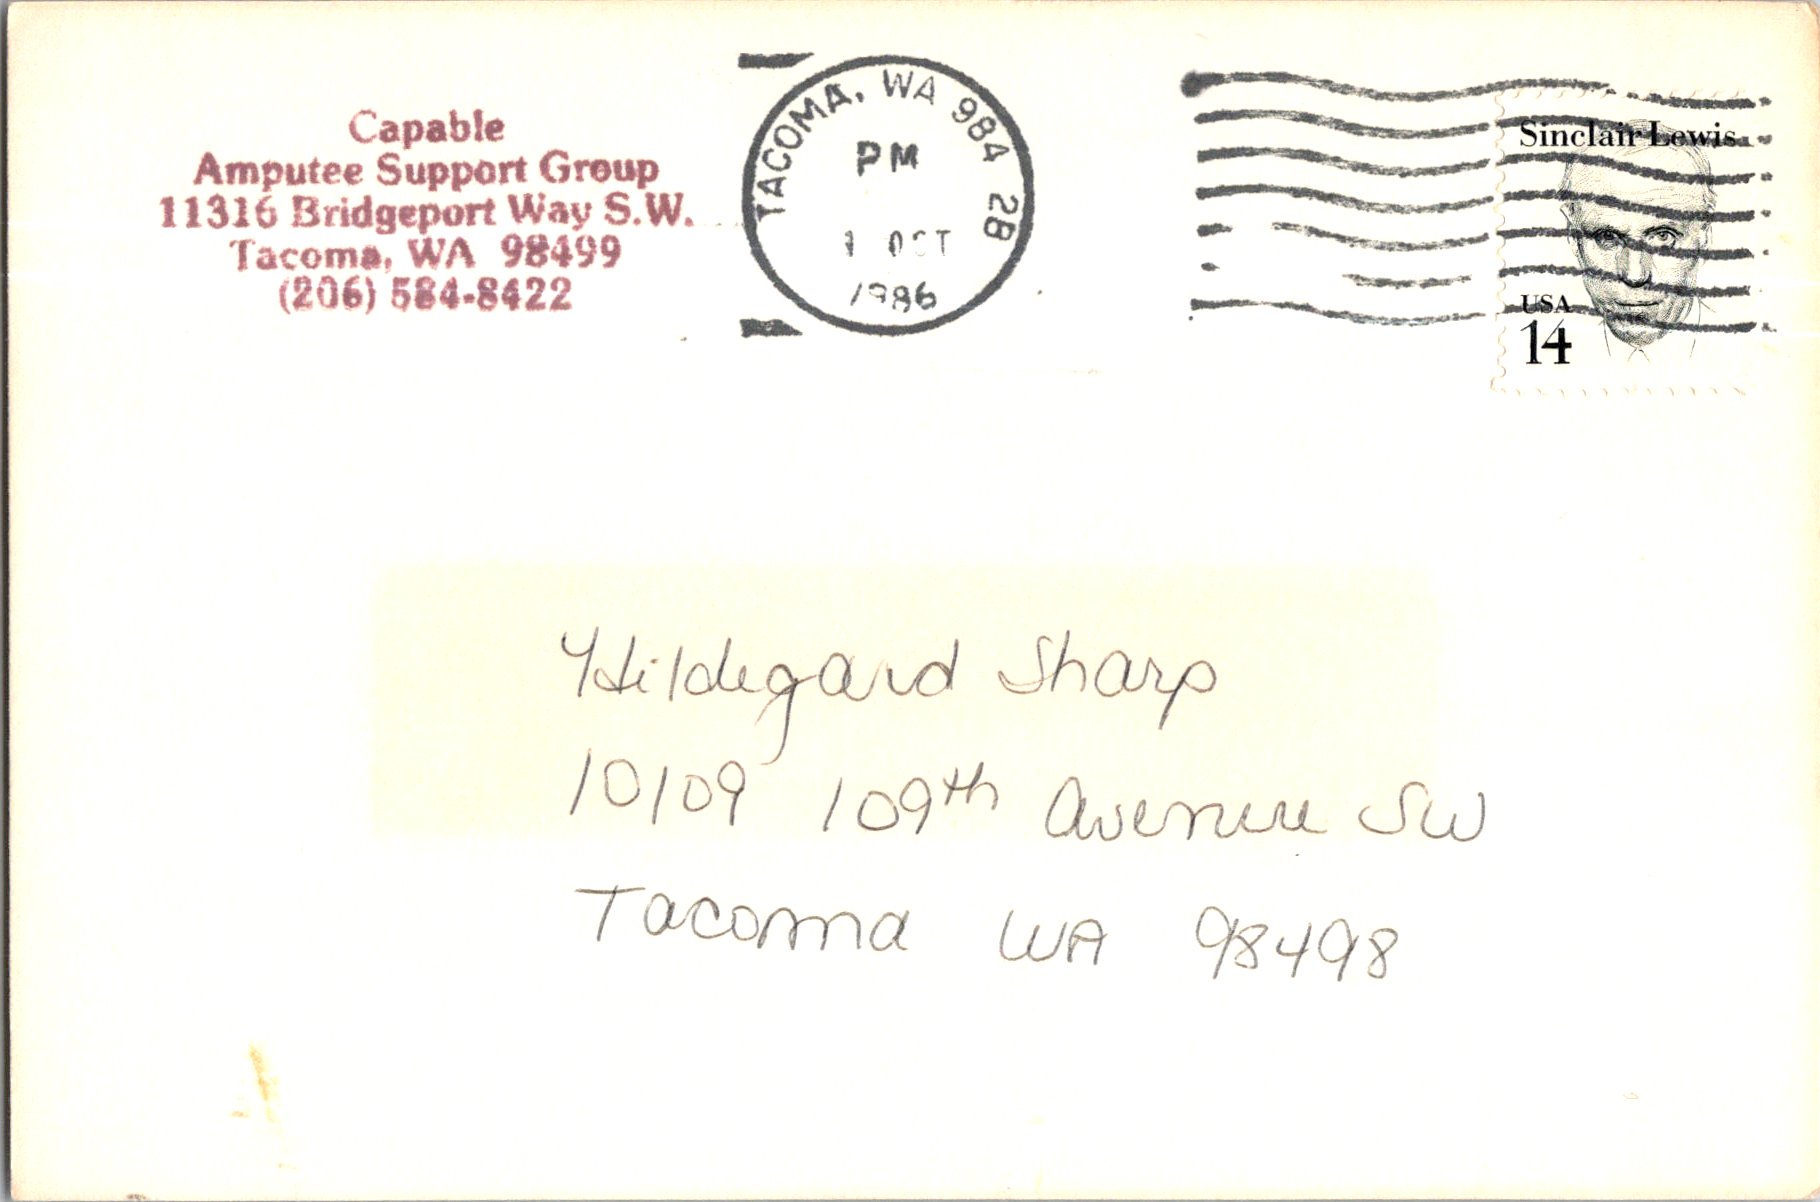 Capable
Amputee Support Group
11316 Bridgeport Way S.W.
Tacoma, WA 98499
(206) 584-8422
TACOMA, WA 984 2B
PM
1 OCT
1986
Sinclair Lewis
USA
14
Hildegard Sharp
10109 109th Avenue SW
Tacoma WA 98498